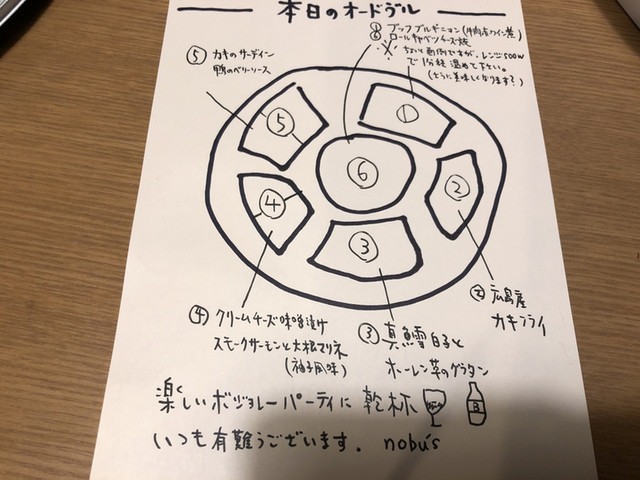 本日のオードブル
① ブッフブルギニョン(牛肉赤ワイン煮)
⑥ ロールキャベツチーズ焼
※ ちょいと面倒ですが、レンジ500W
で1分程温めて下さい。
(さらに美味しくなります?)
⑤ カキのサーディン
鴨のベリーソース
①
⑤
⑥
②
④
③
② 広島産
カキフライ
④ クリームチーズ味噌漬け
スモークサーモンと大根マリネ
(柚子風味)
③ 真鱈白子と
ホーレン草のグラタン
楽しいボジョレーパーティに 乾杯
B
いつも有難うございます。 nobu's